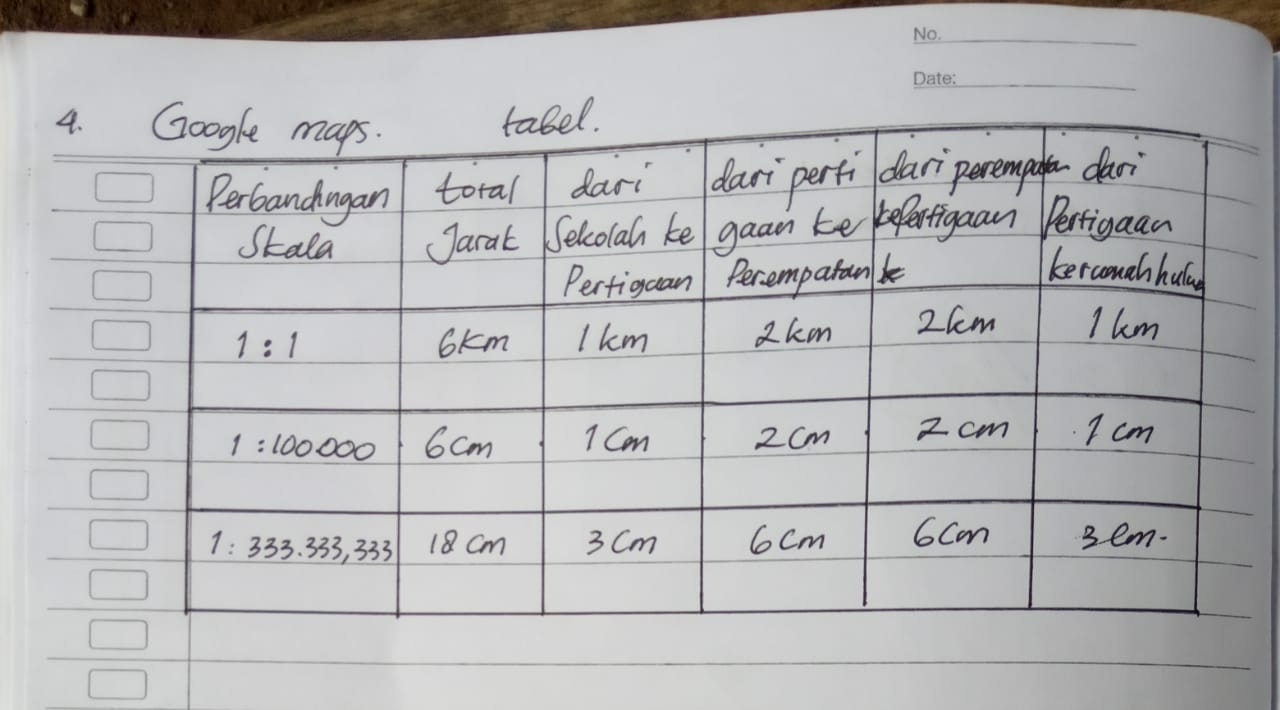 No.
Date:
4. Google maps. tabel.
Perbandingan Skala | total Jarak | dari Sekolah ke Pertigaan | dari perti gaan ke Perempatan | dari perempatan kePertigaan | dari Pertigaan
1 : 1 | 6Km | 1 km | 2 km | 2 km | 1 km
1 : 100.000 | 6 cm | 1 Cm | 2 Cm | 2 cm | 1 cm
1 : 333.333,333 | 18 cm | 3 Cm | 6 Cm | 6 Cm | 3 cm.